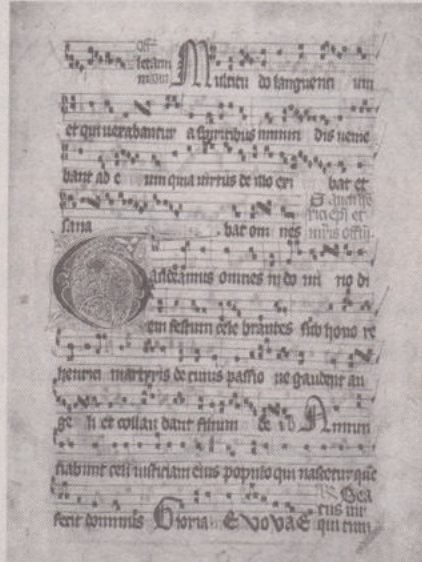 Multitu do languenti um
et qui uexabantur a spiritibus inmun dis uenie
bant ad e um quia uirtus de illo exi bat et
sana bat om nes
Gaudeamus omnes in do mi no di
em festum cele brantes sub hono re
henrici martyris de cuius passio ne gaudent an
ge li et collau dant filium de i Annun
ciabunt celi iusticiam eius populo qui nascetur que
fecit dominus Gloria EVOVAE qui tim